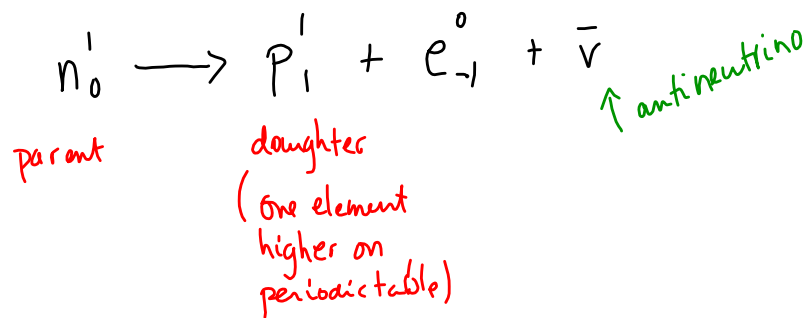 n¹₀ ⟶ p¹₁ + e⁰₋₁ + v̄
↑ antineutrino
parent
daughter
(one element
higher on
periodic table)